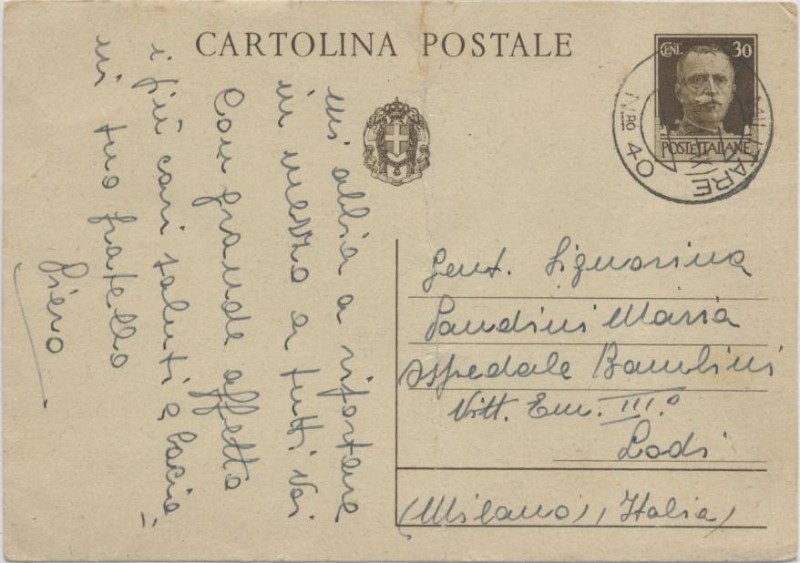 CARTOLINA POSTALE
CENT. 30
POSTE ITALIANE
MILITARE
NRO 40
mi abbia a riportare
in mezzo a tutti voi
Con grande affetto
i più cari saluti e bacia,
ni tuo fratello
Piero
Gent. Signorina
Pandini Maria
Ospedale Bambini
Vitt. Em. III.º
Lodi
(Milano), Italia)